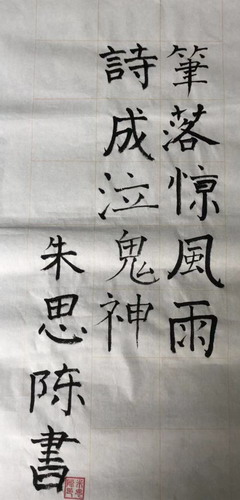 筆落惊風雨
詩成泣鬼神
朱思陈書